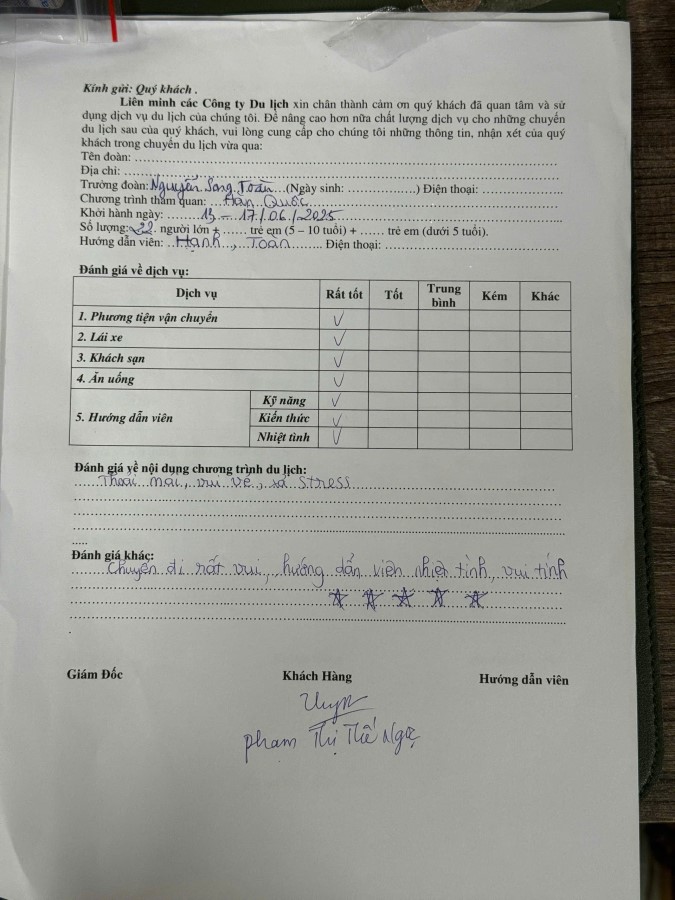 Kính gửi: Quý khách .
Liên minh các Công ty Du lịch xin chân thành cảm ơn quý khách đã quan tâm và sử
dụng dịch vụ du lịch của chúng tôi. Để nâng cao hơn nữa chất lượng dịch vụ cho những chuyến
du lịch sau của quý khách, vui lòng cung cấp cho chúng tôi những thông tin, nhận xét của quý
khách trong chuyến du lịch vừa qua:
Tên đoàn:
Địa chỉ:
Trưởng đoàn: Nguyễn Song Toàn (Ngày sinh: ) Điện thoại:
Chương trình thăm quan: Hàn Quốc
Khởi hành ngày: 13 - 17/06/2025
Số lượng: 22 người lớn + ...... trẻ em (5 – 10 tuổi) + ...... trẻ em (dưới 5 tuổi).
Hướng dẫn viên: Hạnh, Toàn Điện thoại:
Đánh giá về dịch vụ:
Dịch vụ Rất tốt Tốt Trung bình Kém Khác
1. Phương tiện vận chuyển ✓
2. Lái xe ✓
3. Khách sạn ✓
4. Ăn uống ✓
5. Hướng dẫn viên Kỹ năng ✓
Kiến thức ✓
Nhiệt tình ✓
Đánh giá về nội dung chương trình du lịch:
Thoải mái, vui vẻ, xả stress
Đánh giá khác:
Chuyến đi rất vui, hướng dẫn viên nhiệt tình, vui tính
☆ ☆ ☆ ☆ ☆
Giám Đốc Khách Hàng Hướng dẫn viên
Phạm Thị Thế